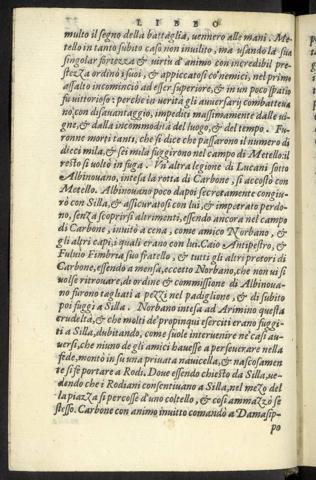 LIBRO
multo il segno della battaglia, vennero alle mani. Me-
tello in tanto subito caso non inuilito, ma usando la sua
singolar fortezza & uirtù d'animo con incredibil pre-
stezza ordinò i suoi, & appiccatosi co' nemici, nel primo
assalto incominciò ad esser superiore, & in un poco spatio
fu uittorioso: perche in uerità gli auuersarij combatteua
no con disauantaggio, impediti massimamente dalle ui-
gne, & dalla incommodità del luogo, & del tempo. Fu-
ronne morti tanti, che si dice che passarono il numero di
dieci mila, & sei mila fuggirono nel campo di Metello: il
resto si uoltò in fuga. Vn'altra legione di Lucani sotto
Albinouano, intesa la rotta di Carbone, si accostò con
Metello. Albinouano poco dapoi secretamente congiu-
rò con Silla, & assicuratosi con lui, & impetrato perdo-
no, senza scoprirsi altrimenti, essendo ancora nel campo
di Carbone, inuitò a cena, come amico Norbano, &
gli altri capi, i quali erano con lui. Caio Antipestro, &
Fuluio Fimbria suo fratello, & tutti gli altri pretori di
Carbone, essendo a mensa, eccetto Norbano, che non ui si
uolse ritrouare, di ordine & commissione di Albinoua-
no furono tagliati a pezzi nel padiglione, & di subito
poi fuggì a Silla. Norbano intesa ad Arimino questa
crudeltà, & che molti de' propinqui eserciti erano fuggi-
ti a Silla, dubitando, come suole interuenire ne' casi au-
uersi, che niuno de gli amici hauesse a perseuerare nella
fede, montò in su una priuata nauicella, & nascosamen-
te si fè portare a Rodi. Doue essendo chiesto da Silla, ue-
dendo che i Rodiani consentiuano a Silla, nel mezo del
la piazza si percosse d'uno coltello, & così ammazzò se
stesso. Carbone con animo inuitto comandò a Damasip-
po